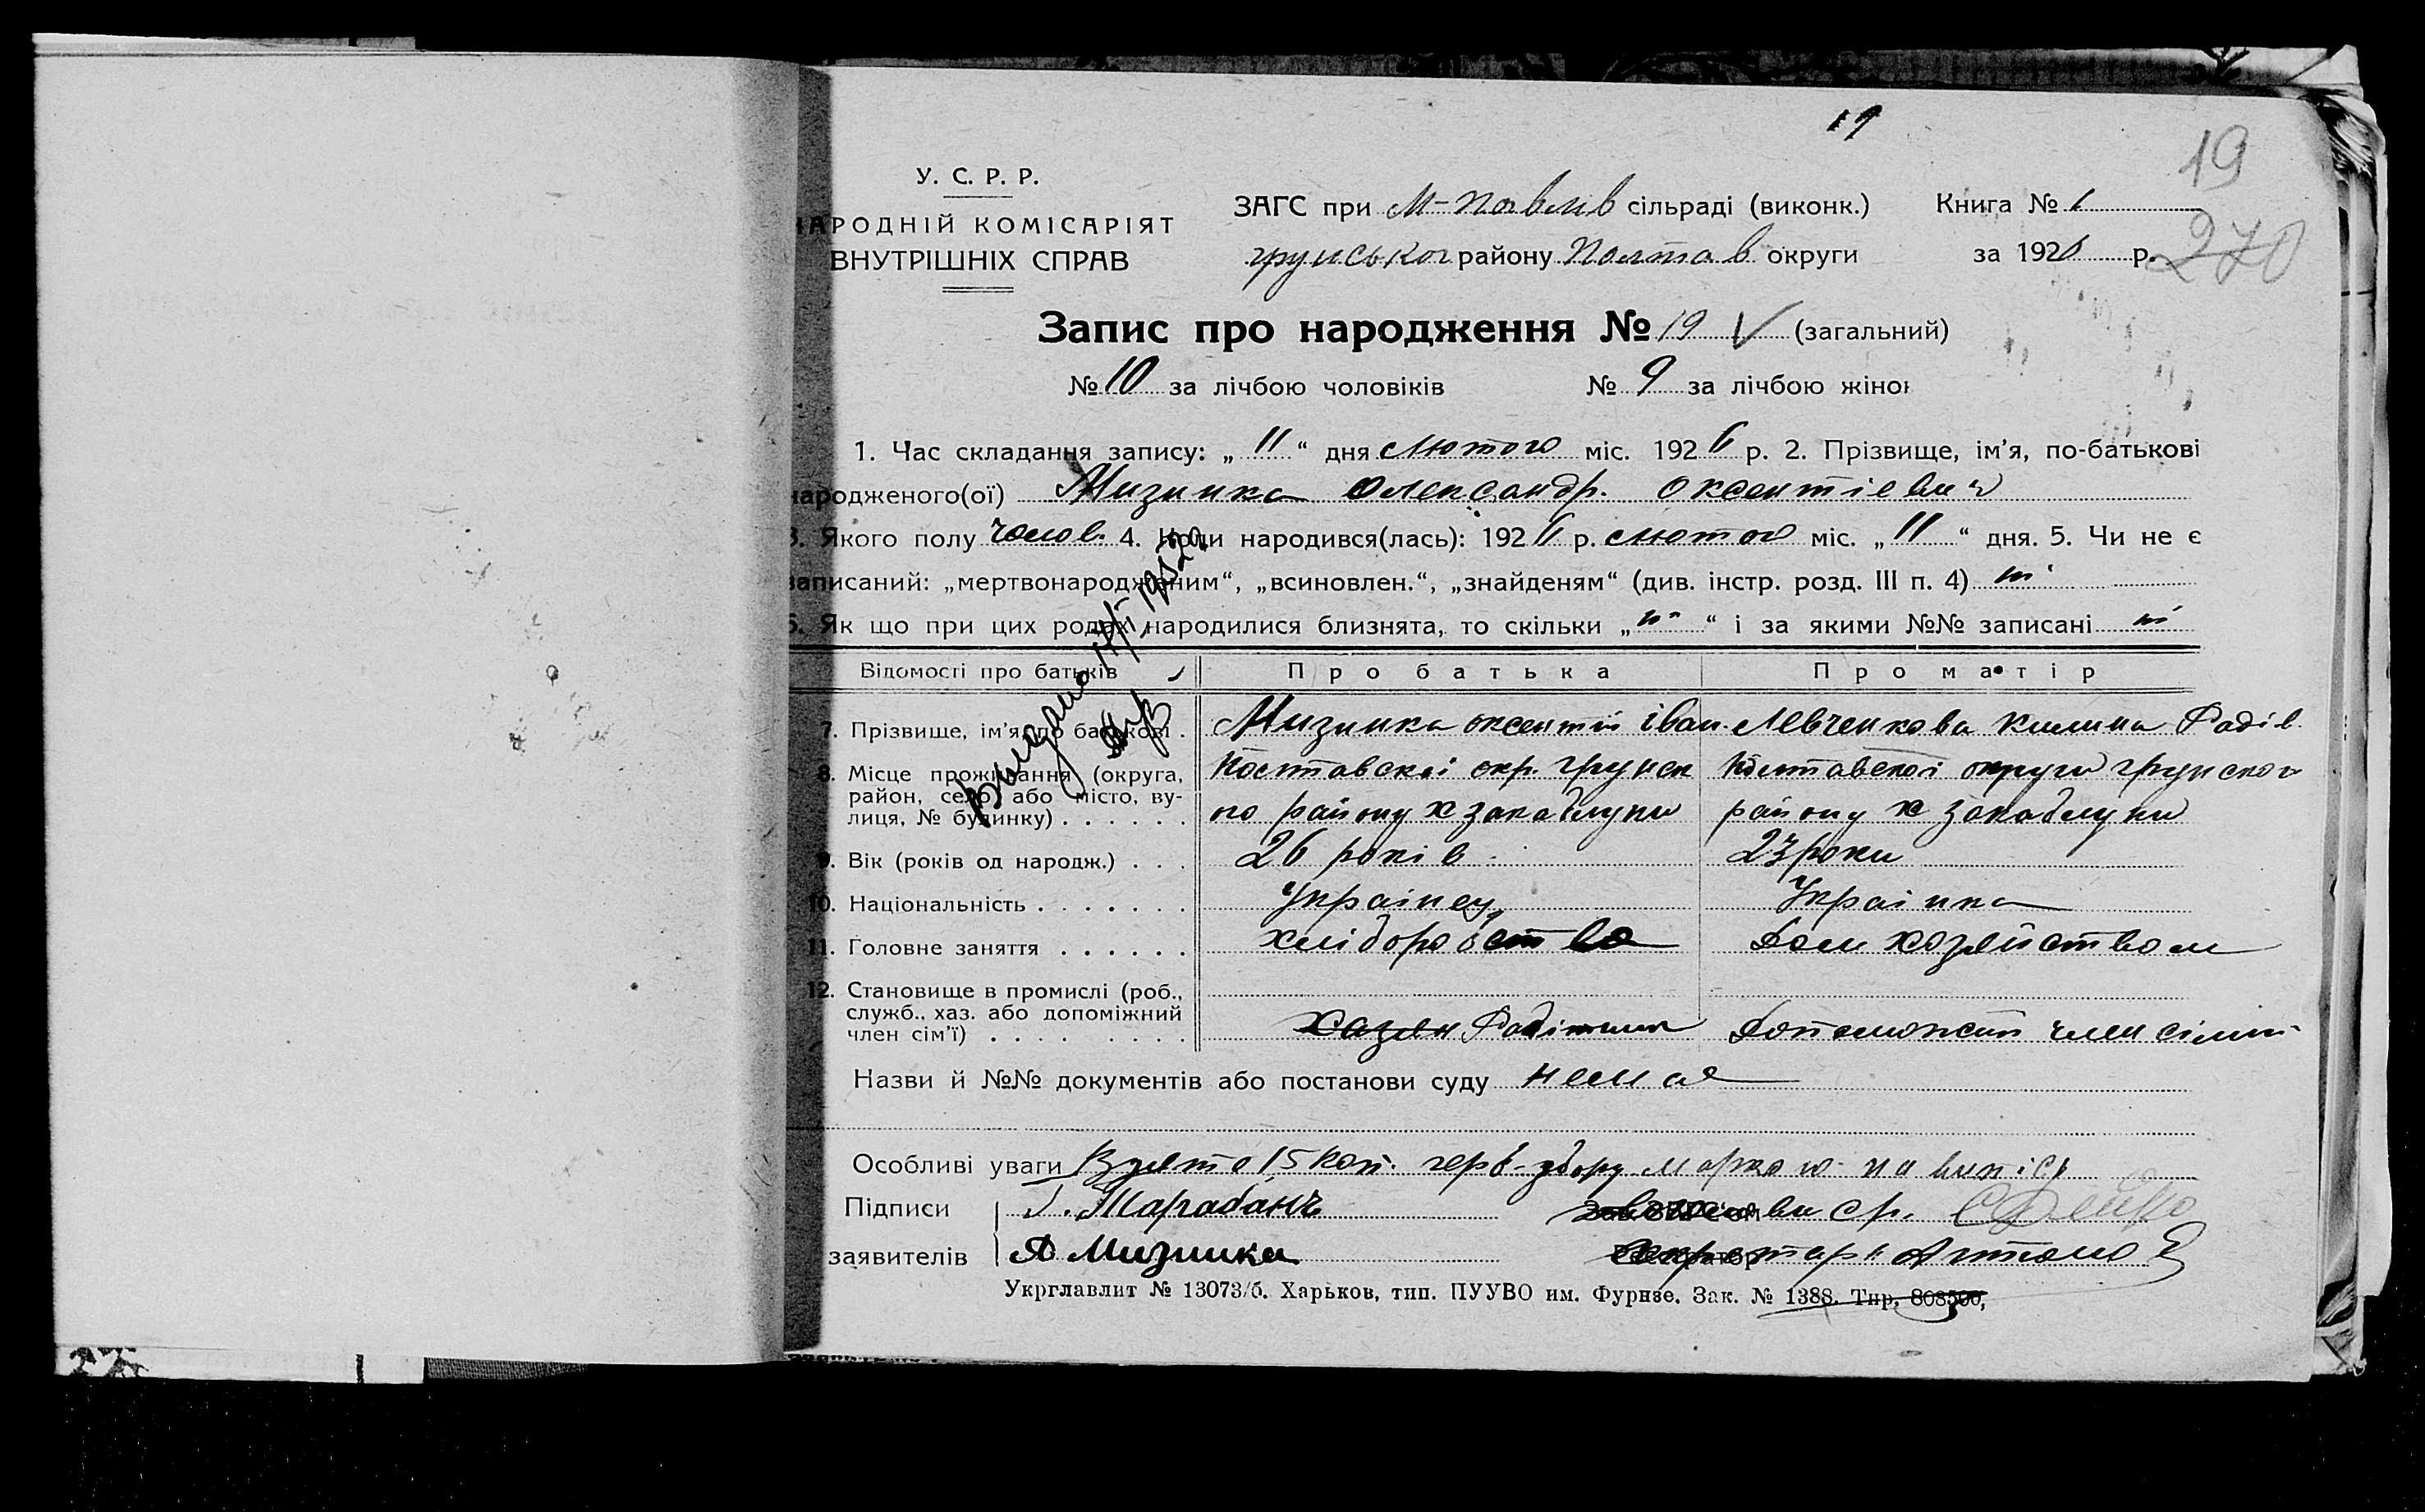 19
19
270
У. С. Р. Р.
НАРОДНІЙ КОМІСАРІЯТ
ВНУТРІШНІХ СПРАВ
ЗАГС при М-Павлів сільраді (виконк.)
грунської району Полтав округи
Книга № 1
за 1926 р.
Запис про народження № 19 V (загальний)
№ 10 за лічбою чоловіків № 9 за лічбою жінок
1. Час складання запису: „ 11 “ дня лютого міс. 1926 р. 2. Прізвище, ім’я, по-батькові
народженого(ої) Мизинка Олександр. Оксентієвич
3. Якого полу чолов. 4. Коли народився(лась): 1926 р. лютого міс. „ 11 “ дня. 5. Чи не є
записаний: „мертвонародженим“, „всиновлен.“, „знайденям“ (див. інстр. розд. III п. 4) ні
6. Як що при цих родах народилися близнята, то скільки „ ні “ і за якими №№ записані ні
Відомості про батьків Про батька Про матір
7. Прізвище, ім’я, по батькові . Мизинка оксентій іван. Левченкова Килина Фадів.
8. Місце проживання (округа, район, село або місто, вулиця, № будинку) . . . . . .
Полтавскої окр. Грунск
ого району х закаблуки
Полтавскої округи грунского
району х закаблуки
9. Вік (років од народж.) . . . 26 років 23 роки
10. Національність . . . . . . . Українец Українка
11. Головне заняття . . . . . . хліборобство Дом хозяйством
12. Становище в промислі (роб., служб., хаз. або допоміжний член сім’ї) . . . . . . . .
Хазяїн
Допоможний член сімьї
Назви й №№ документів або постанови суду немає
Особливі уваги Взято 15 коп. черв. збору маркою на випісі
Підписи Тарабанъ
заявителів Мизинка
Видано 1952
Укрглавлит № 13073/б. Харьков, тип. ПУУВО им. Фурнзе. Зак. № 1388. Тир. 808500,